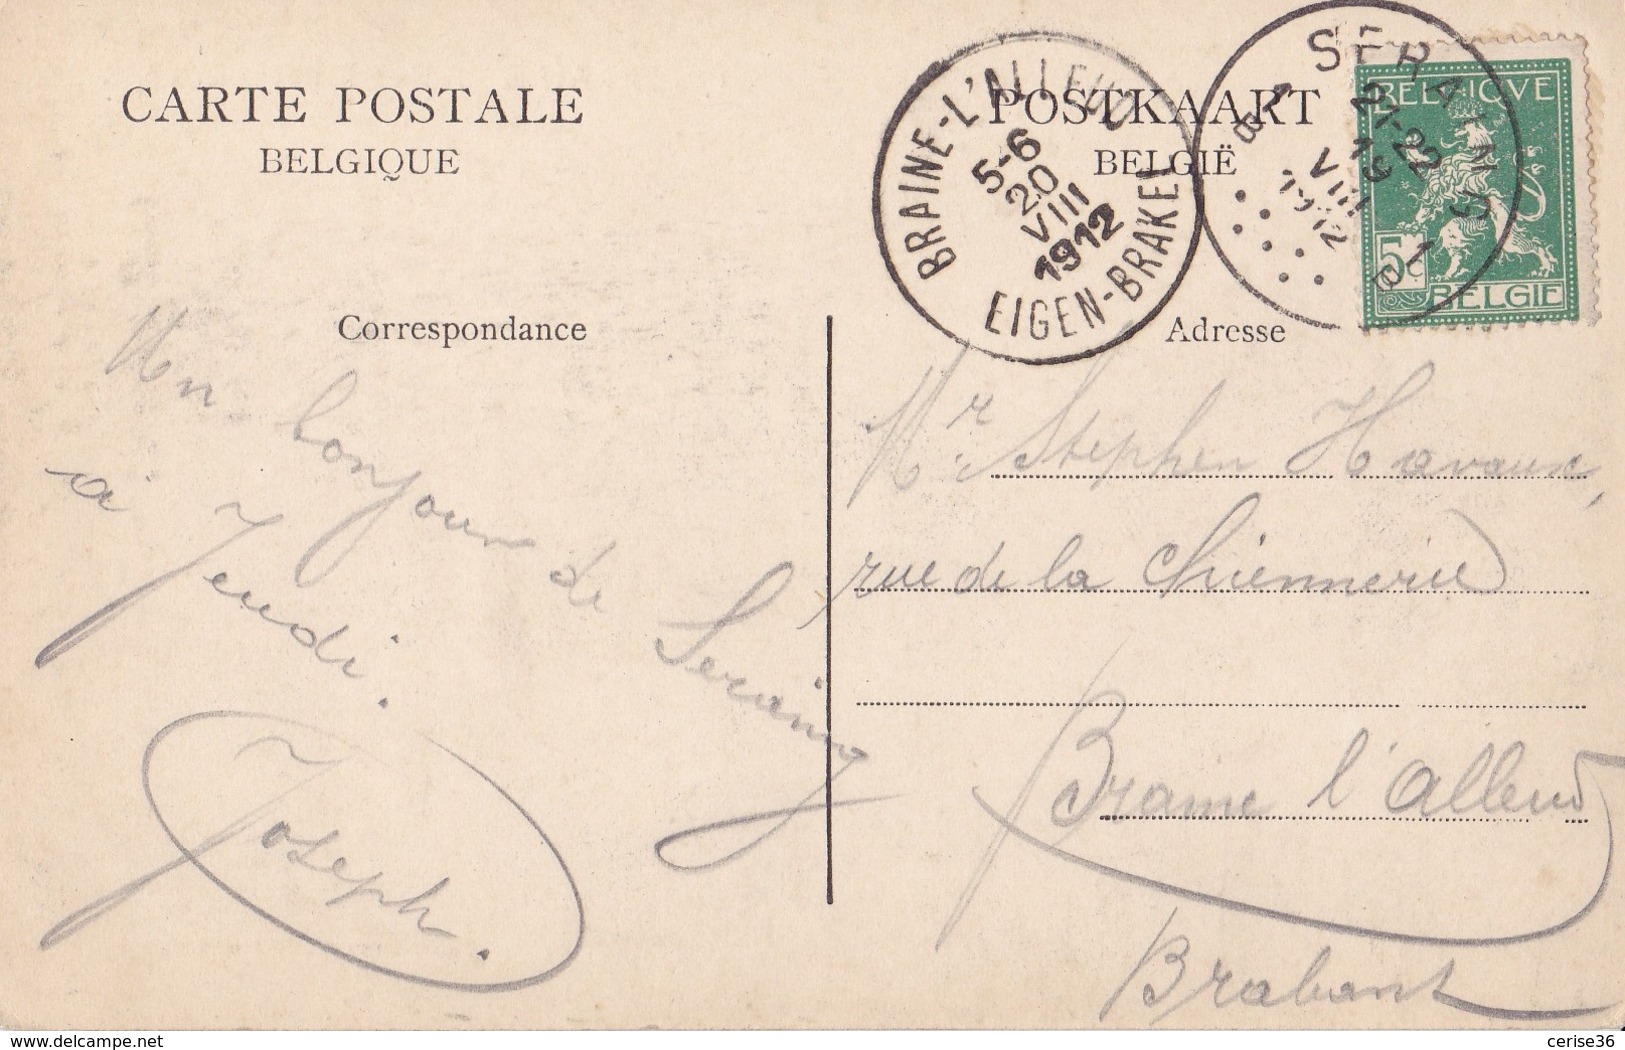 CARTE POSTALE
BELGIQUE
POSTKAART
BELGIË
BRAINE-L'ALLEUD
5-6
20
VIII
1912
EIGEN-BRAKEL
SERAING
21-22
19
VIII
1912
BELGIQUE
5c
BELGIË
Correspondance
Adresse
Un bonjour de Seraing
à Jeudi.
Joseph.
Mr. Stephen Havaux,
rue de la
Braine l'Alleud
Brabant
delcampe.net
cerise36